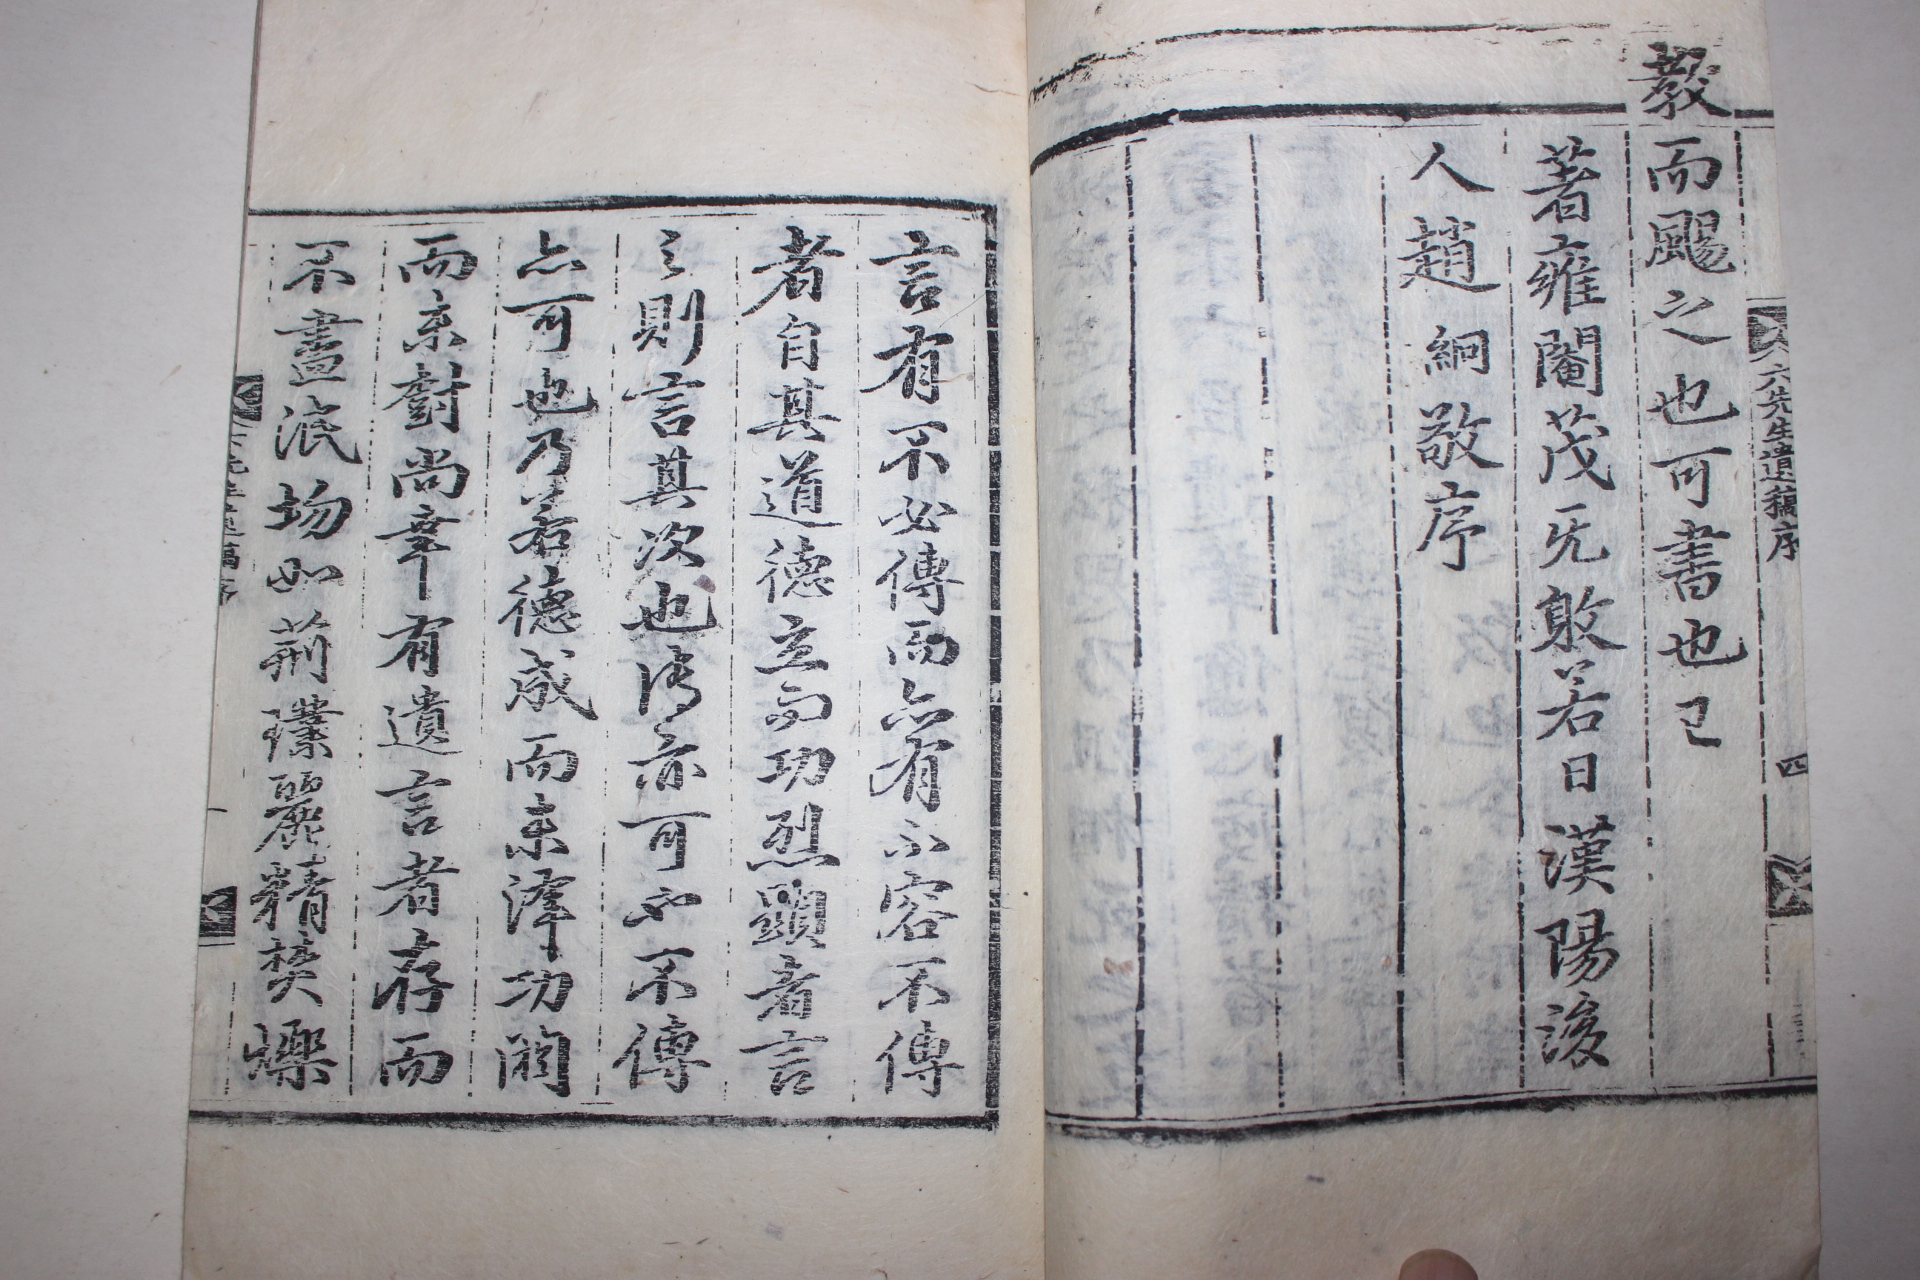 教而颺之也可書也已
著雍閹茂旡敦若日漢陽後
人趙絅敬序
六先生遺稿序
四
言有不必傳而亦有不容不傳
者自其道德立而功烈顯者言
之則言其次也傳亦可也不傳
亦可也乃若德成而未澤功閟
而未對尚幸有遺言者存而
不盡泯場如荊璞麗精奬爍
六先生遺稿序
一